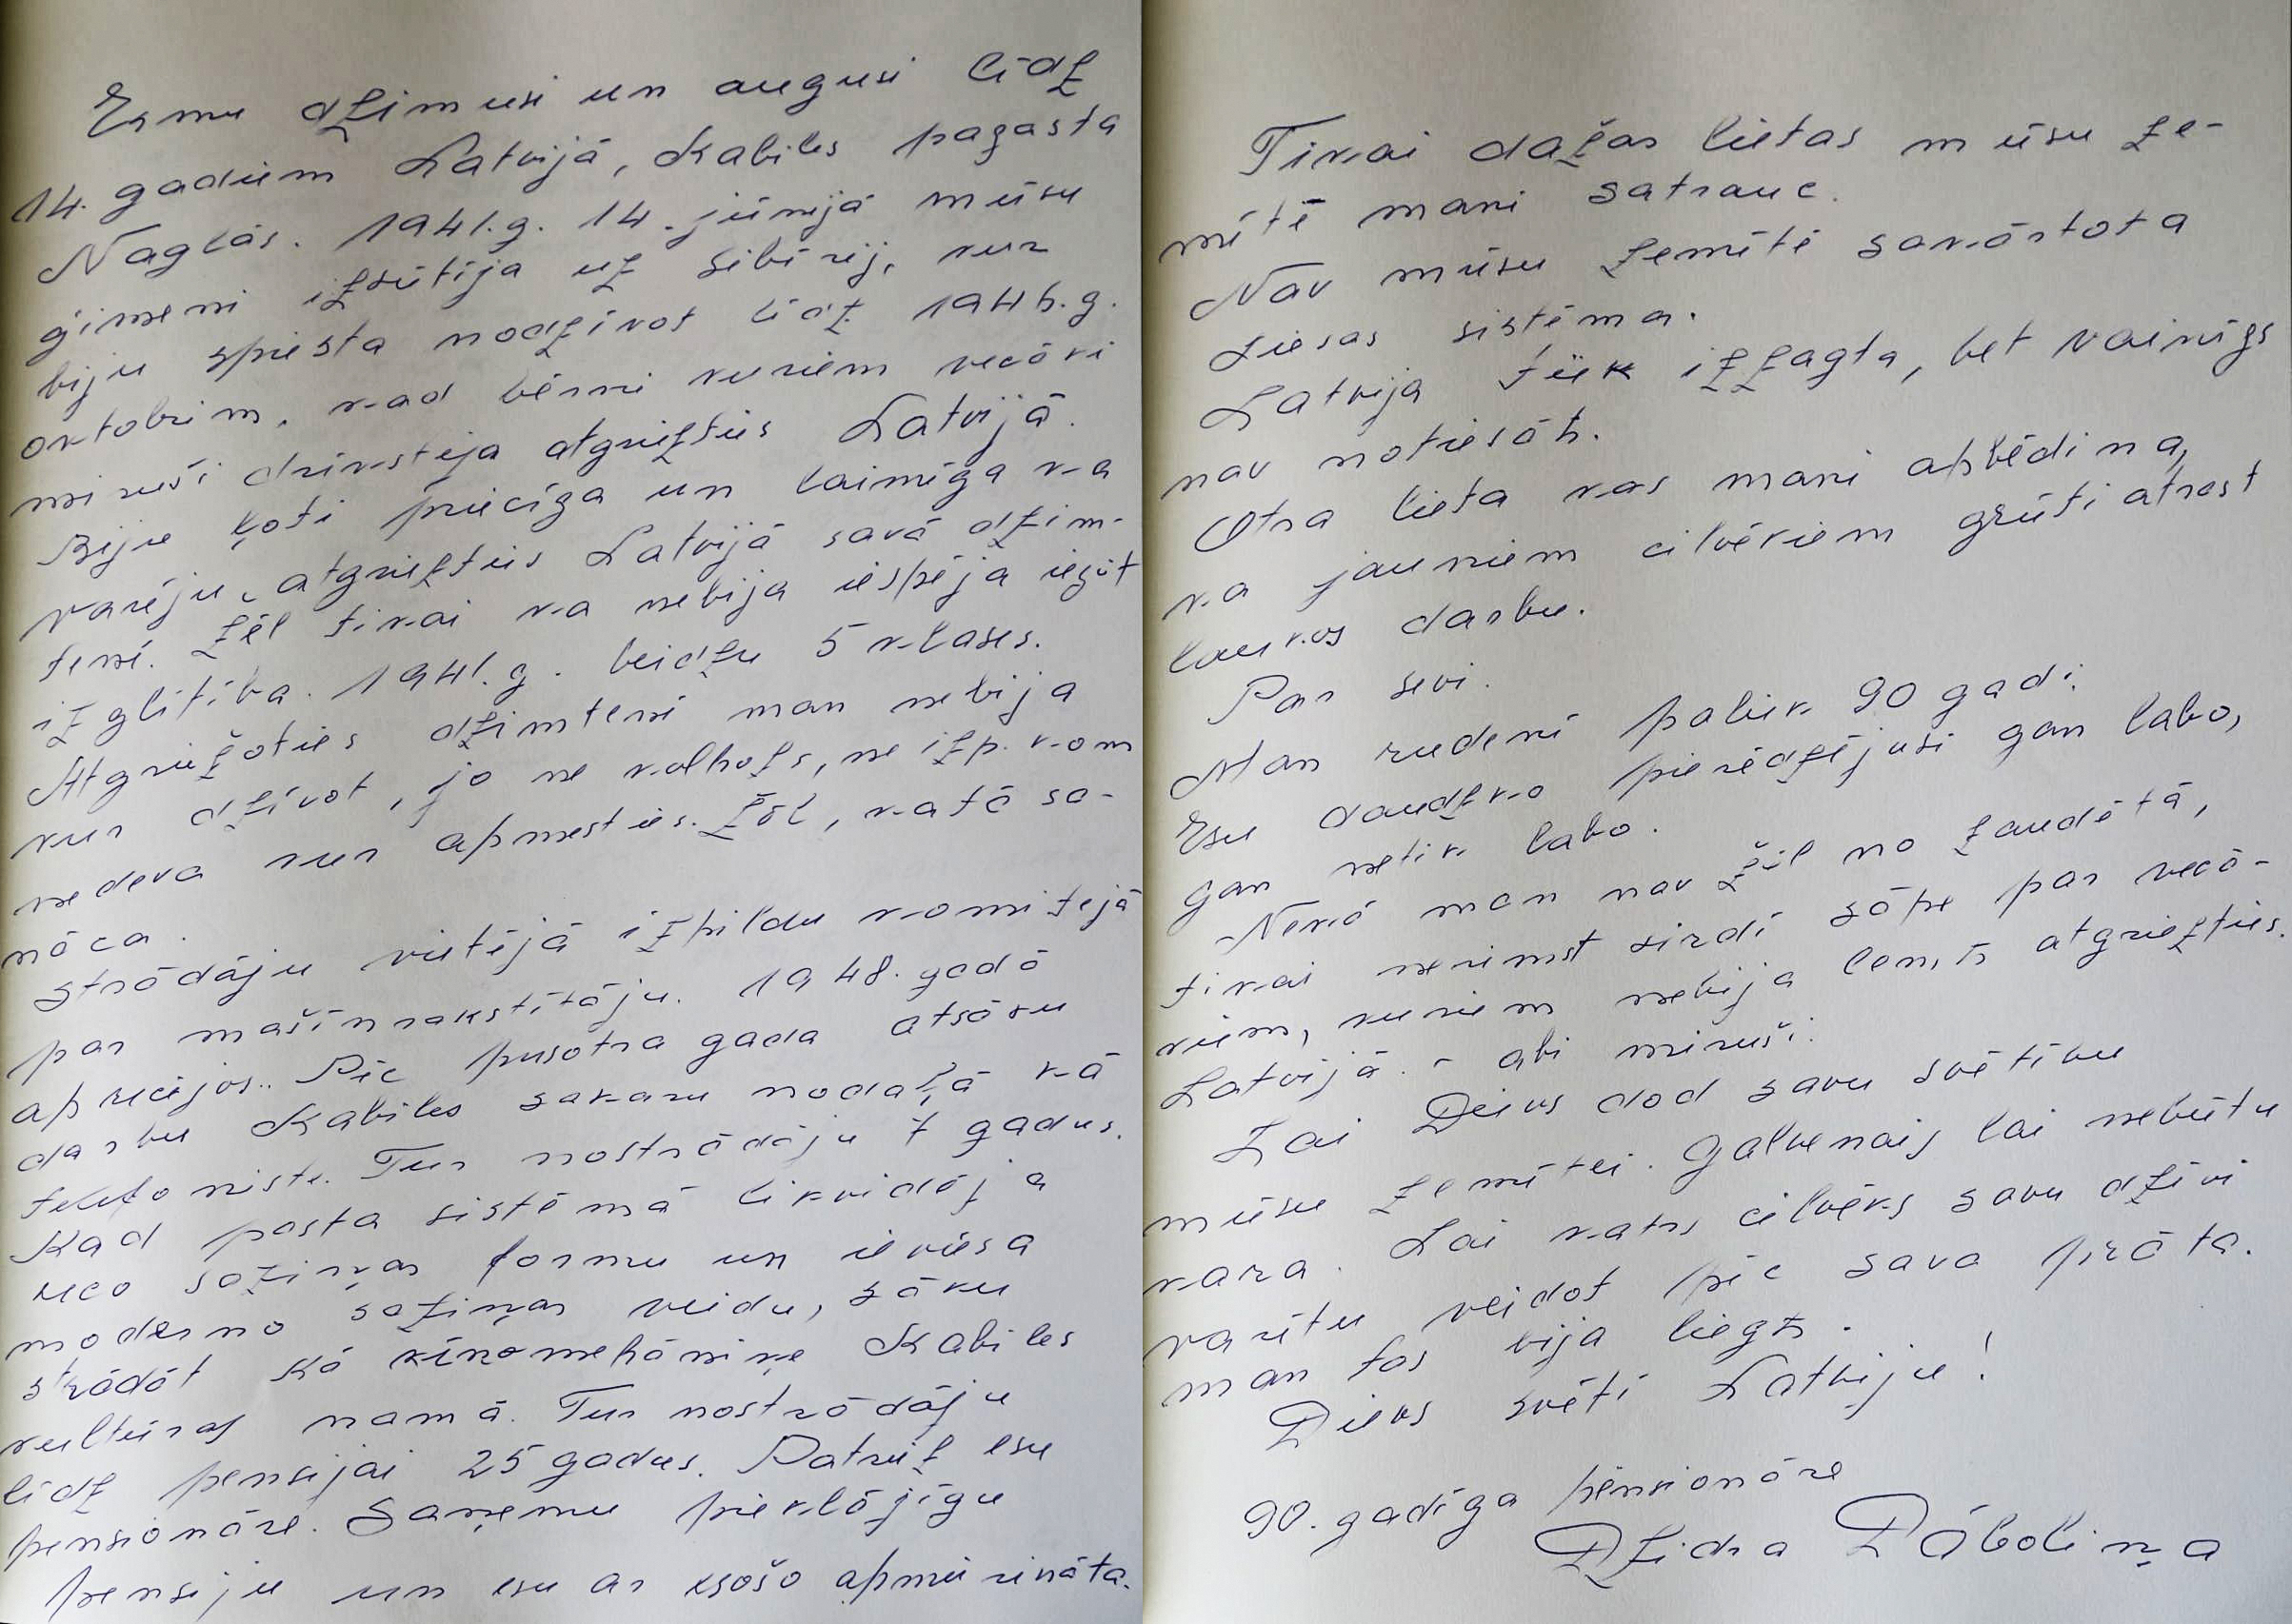 Esmu dzimusi un augusi līdz
14. gadiem Latvijā, Kabiles pagasta
Naglās. 1941.g. 14. jūnijā mūsu
ģimeni izsūtīja uz Sibīrij, kur
biju spiesta nodzīvot līdz 1946.g.
oktobrim, kad bērni kuriem vecāki
miruši drīkstēja atgriezties Latvijā.
Biju ļoti priecīga un laimīga ka
varēju atgriezties Latvijā savā dzim-
tenē. Žēl tikai ka nebija iespēja iegūt
izglītība. 1941.g. beidzu 5 klases.
Atgriežoties dzimtenē man nebija
kur dzīvot, jo ne kolhozs, ne izp. kom
nedeva kur apmesties. Žēl, ka tā sa-
nāca.
Strādāju vietējā izpildu komitejā
par mašīnrakstītāju. 1948. gadā
aprecējos.. Pēc pusotra gada atsāku
darbu Kabiles sakaru nodaļā kā
telefoniste. Tur nostrādāju 7 gadus.
Kad pasta sistēmā likvidēja
veco saziņas formu un ieviesa
moderno saziņas veidu, sāku
strādāt kā kinomehāniķe Kabiles
kultūras namā. Tur nostrādāju
līdz pensijai 25 gadus. Patreiz esu
pensionāre. Saņemu pieklājīgu
pensiju un esu ar esošo apmierināta.
Tikai dažas lietas mūsu ze-
mītē mani satrauc.
Nav mūsu zemītē sakārtota
tiesas sistēma.
Latvija tiek izzagta, bet vainīgs
nav notiesāts.
Otra lieta kas mani apbēdina,
ka jauniem cilvēkiem grūti atrast
laukos darbu.
Par sevi.
Man rudenī paliek 90 gadi.
Esu daudzko pieredzējusi gan labo,
gan netik labo.
Nekā man nav žēl no zaudētā,
tikai nerimst sirdī sāpe par vecā-
kiem, kuriem nebija lemts atgriezties
Latvijā. - abi miruši.
Lai Dievs dod savu svētību
mūsu zemītei. Galvenais lai nebūtu
kara. Lai katrs cilvēks savu dzīvi
varētu veidot pēc sava prāta.
man tas bija liegts.
Dievs svētī Latviju!
90. gadīga pensionāre
Dzidra Dāboliņa